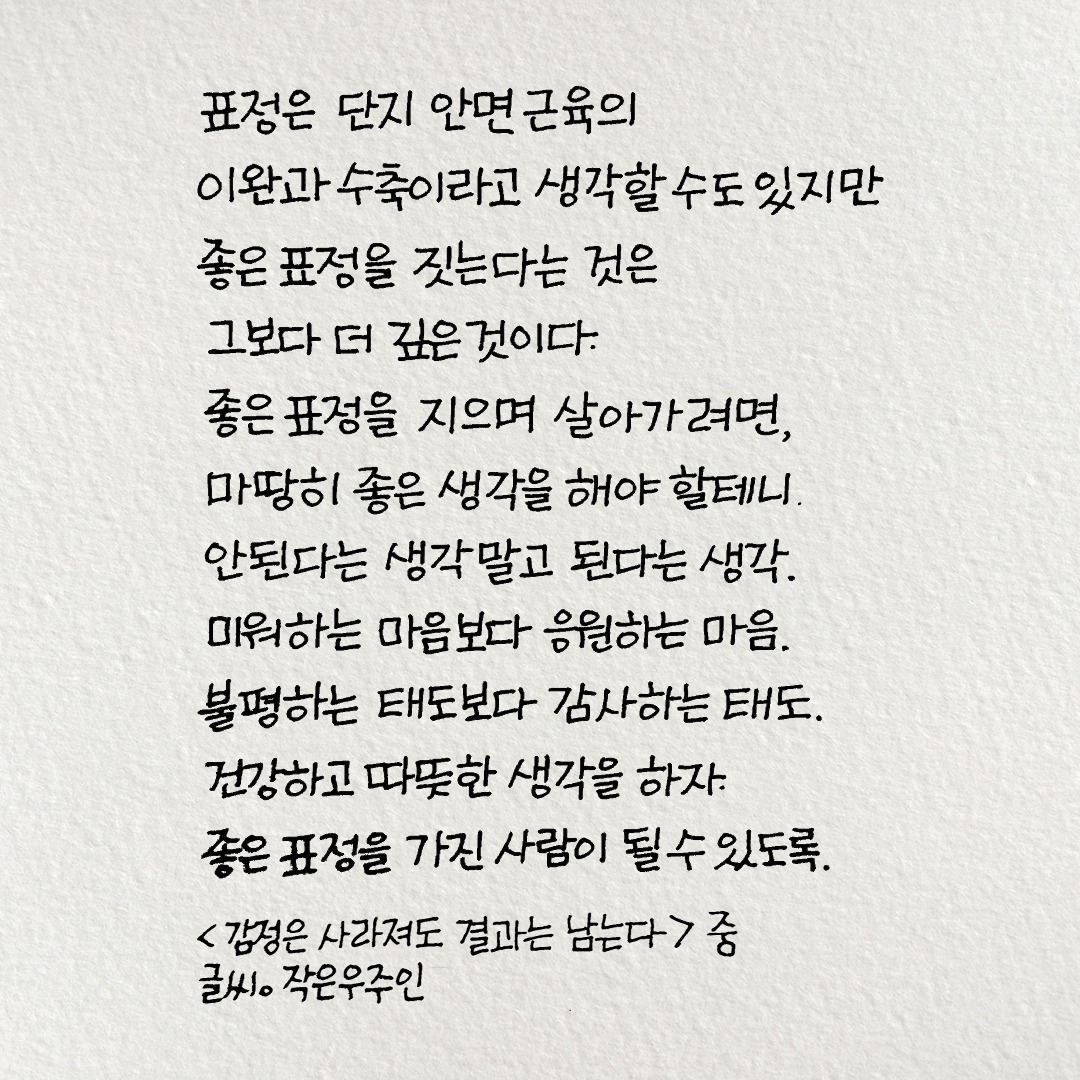 표정은 단지 안면 근육의
이완과 수축이라고 생각할 수도 있지만
좋은 표정을 짓는다는 것은
그보다 더 깊은 것이다.
좋은 표정을 지으며 살아가려면,
마땅히 좋은 생각을 해야 할테니.
안된다는 생각 말고 된다는 생각.
미워하는 마음보다 응원하는 마음.
불평하는 태도보다 감사하는 태도.
건강하고 따뜻한 생각을 하자.
좋은 표정을 가진 사람이 될 수 있도록.
<감정은 사라져도 결과는 남는다> 중
글씨。작은우주인